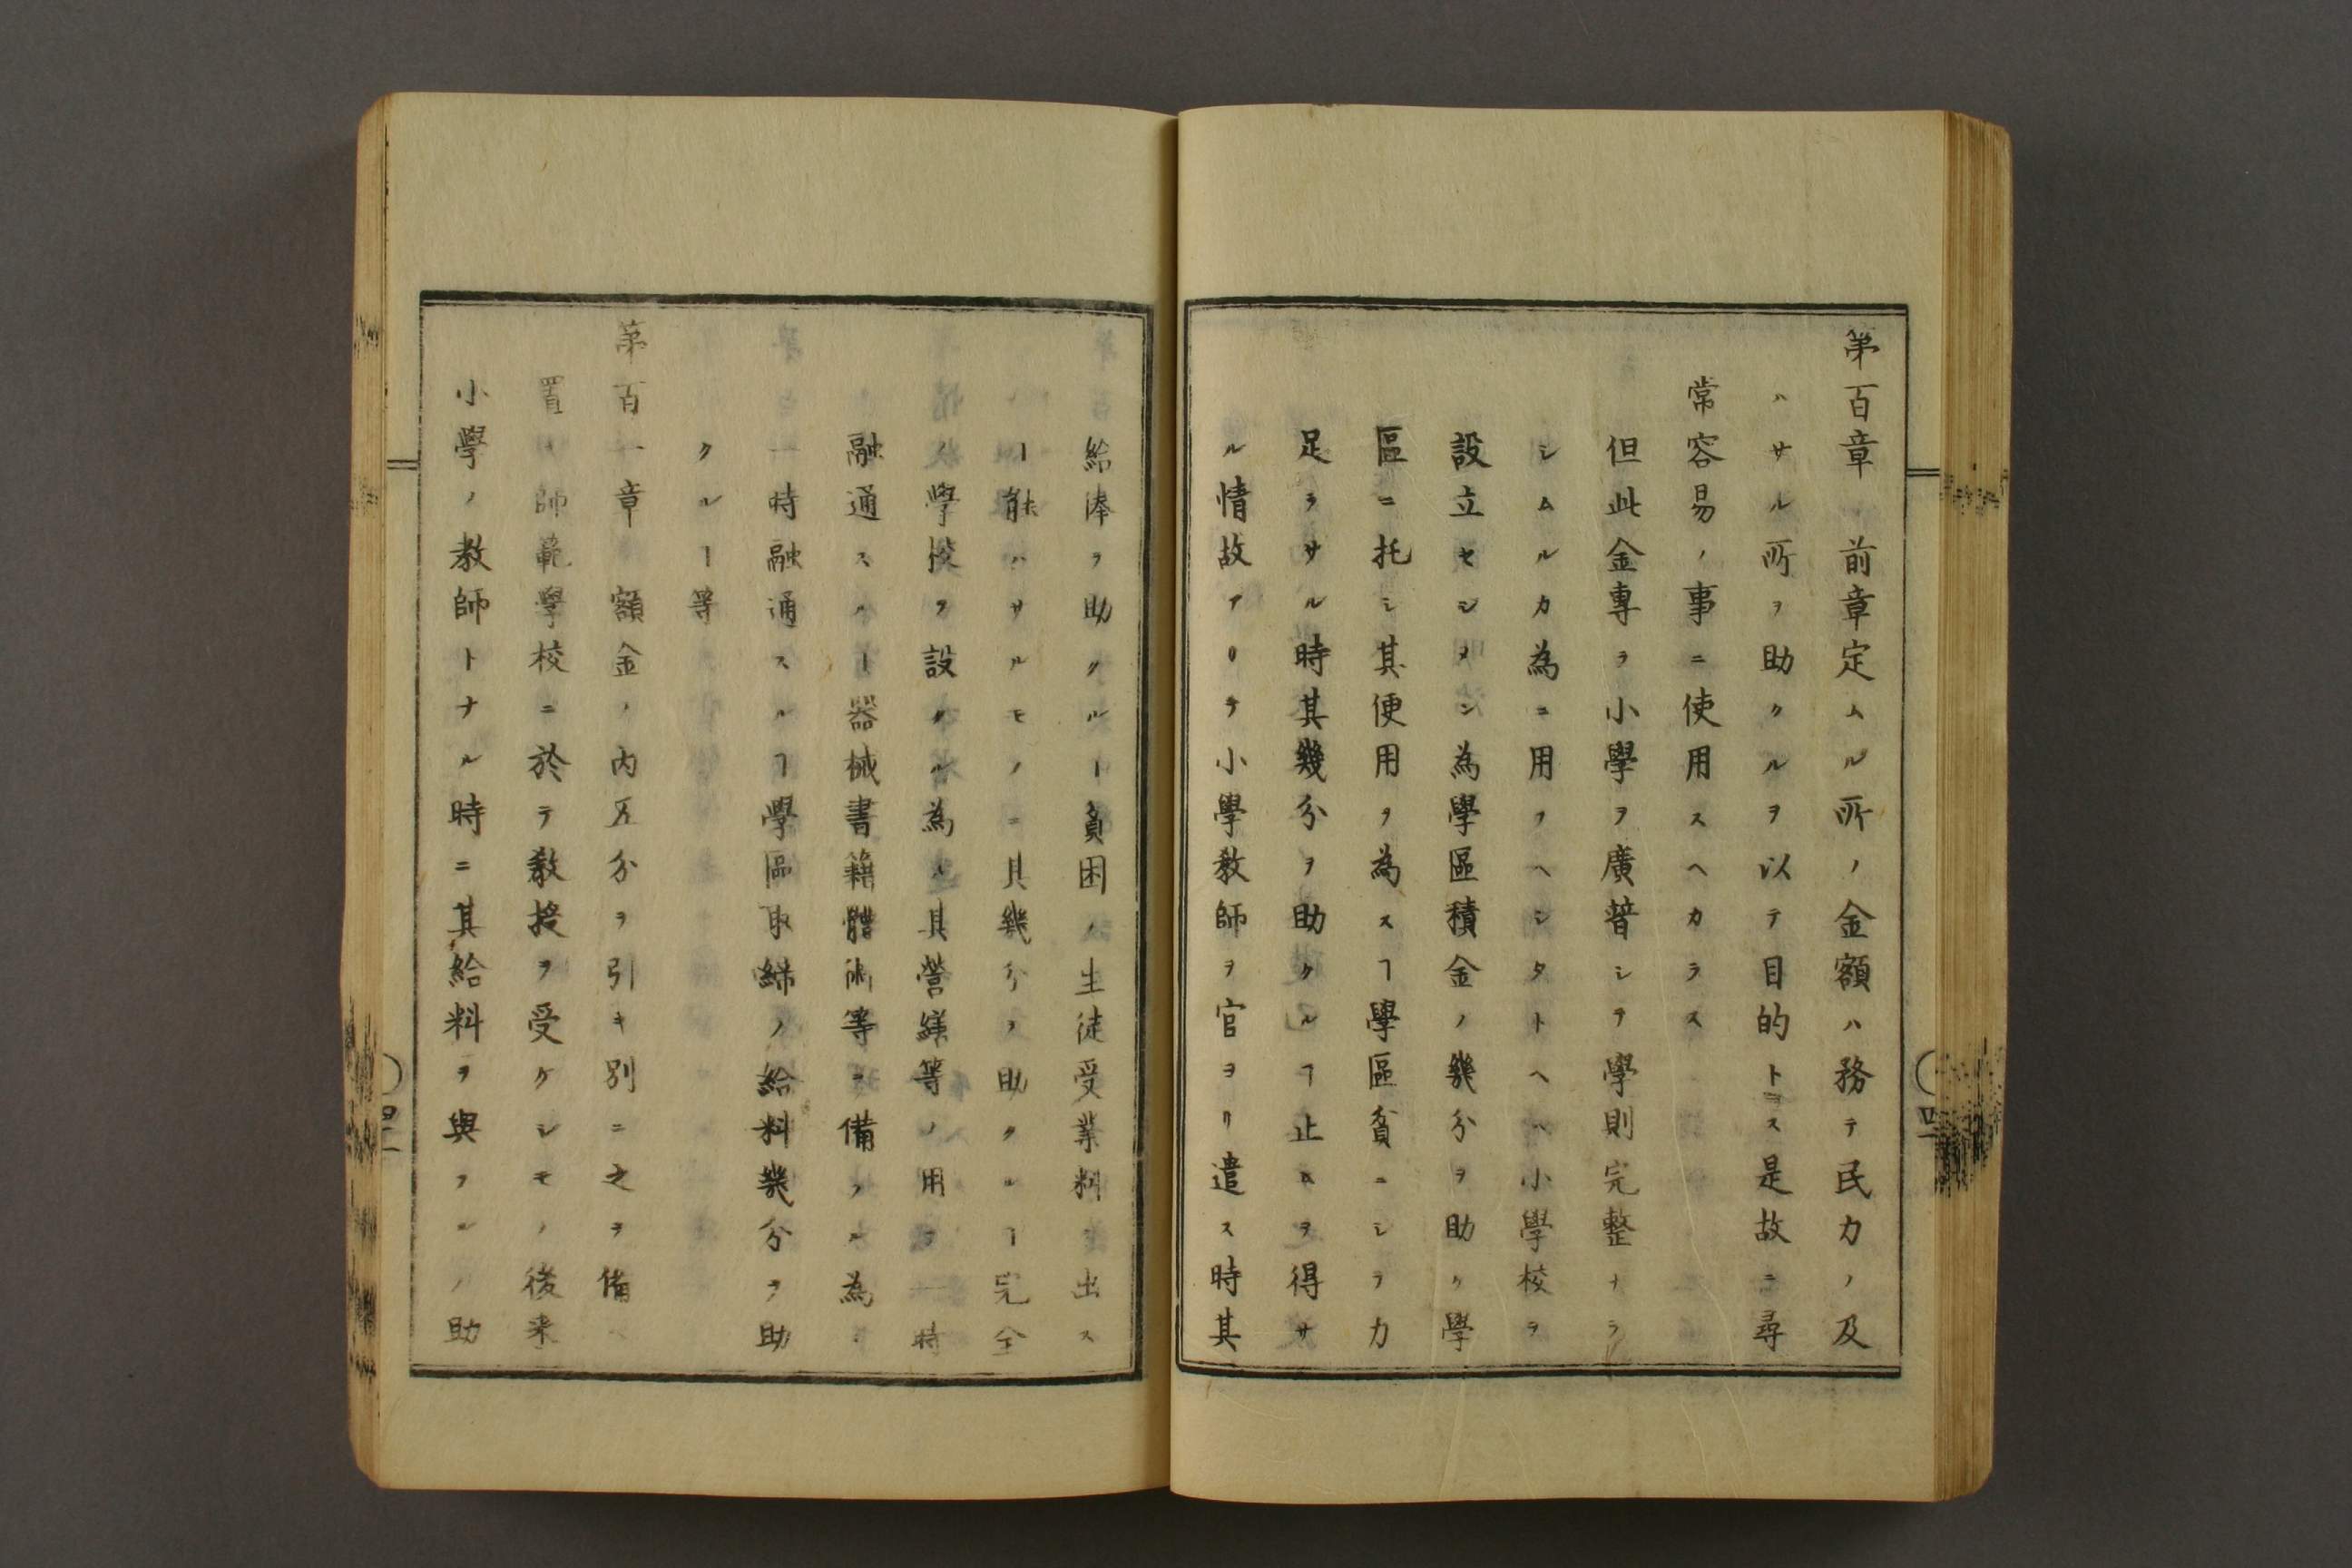 第百章 前章定ムル所ノ金額ハ務テ民力ノ及
ハサル所ヲ助クルヲ以テ目的トス是故ニ尋
常容易ノ事ニ使用スヘカラス
但此金專ラ小學ヲ廣普シヲ學則完整ナラ
シムルカ為ニ用フヘシタトヘハ小學校ヲ
設立セシメン為學區積金ノ幾分ヲ助ク學
區ニ托シ其便用ヲ為スヿ學區貧ニシテ力
足ラサル時其幾分ヲ助クルヿ止ムヲ得サ
ル情故アリテ小學敎師ヲ官ヨリ遣ス時其
給俸ヲ助クルヿ貧困ノ生徒受業料ヲ出ス
ヿ能ハサルモノニ其幾分ヲ助クルヿ完全
ノ學校ヲ設クル為メ其營繕等ノ用ヲ一時
融通スルヿ器械書籍體術等ヲ備フル為
一時融通スルヿ學區取締ノ給料幾分ヲ助
クルヿ等
第百一章 額金ノ内五分ヲ引キ別ニ之ヲ備ヘ
置 師範學校ニ於テ敎授ヲ受ケシモノ後来
小學ノ敎師トナル時ニ其給料ヲ與フルノ助